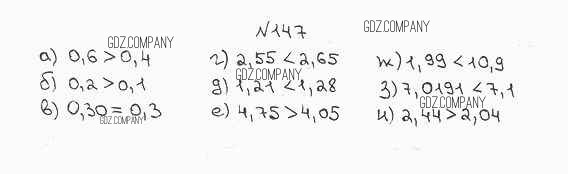 №147
GDZ.COMPANY
GDZ.COMPANY
а) 0,6 > 0,4 г) 2,55 < 2,65 ж) 1,99 < 10,9
GDZ.COMPANY
б) 0,2 > 0,1 д) 1,21 < 1,28 з) 7,0191 < 7,1
GDZ.COMPANY
в) 0,30 = 0,3 е) 4,75 > 4,05 и) 2,44 > 2,04
GDZ.COMPANY